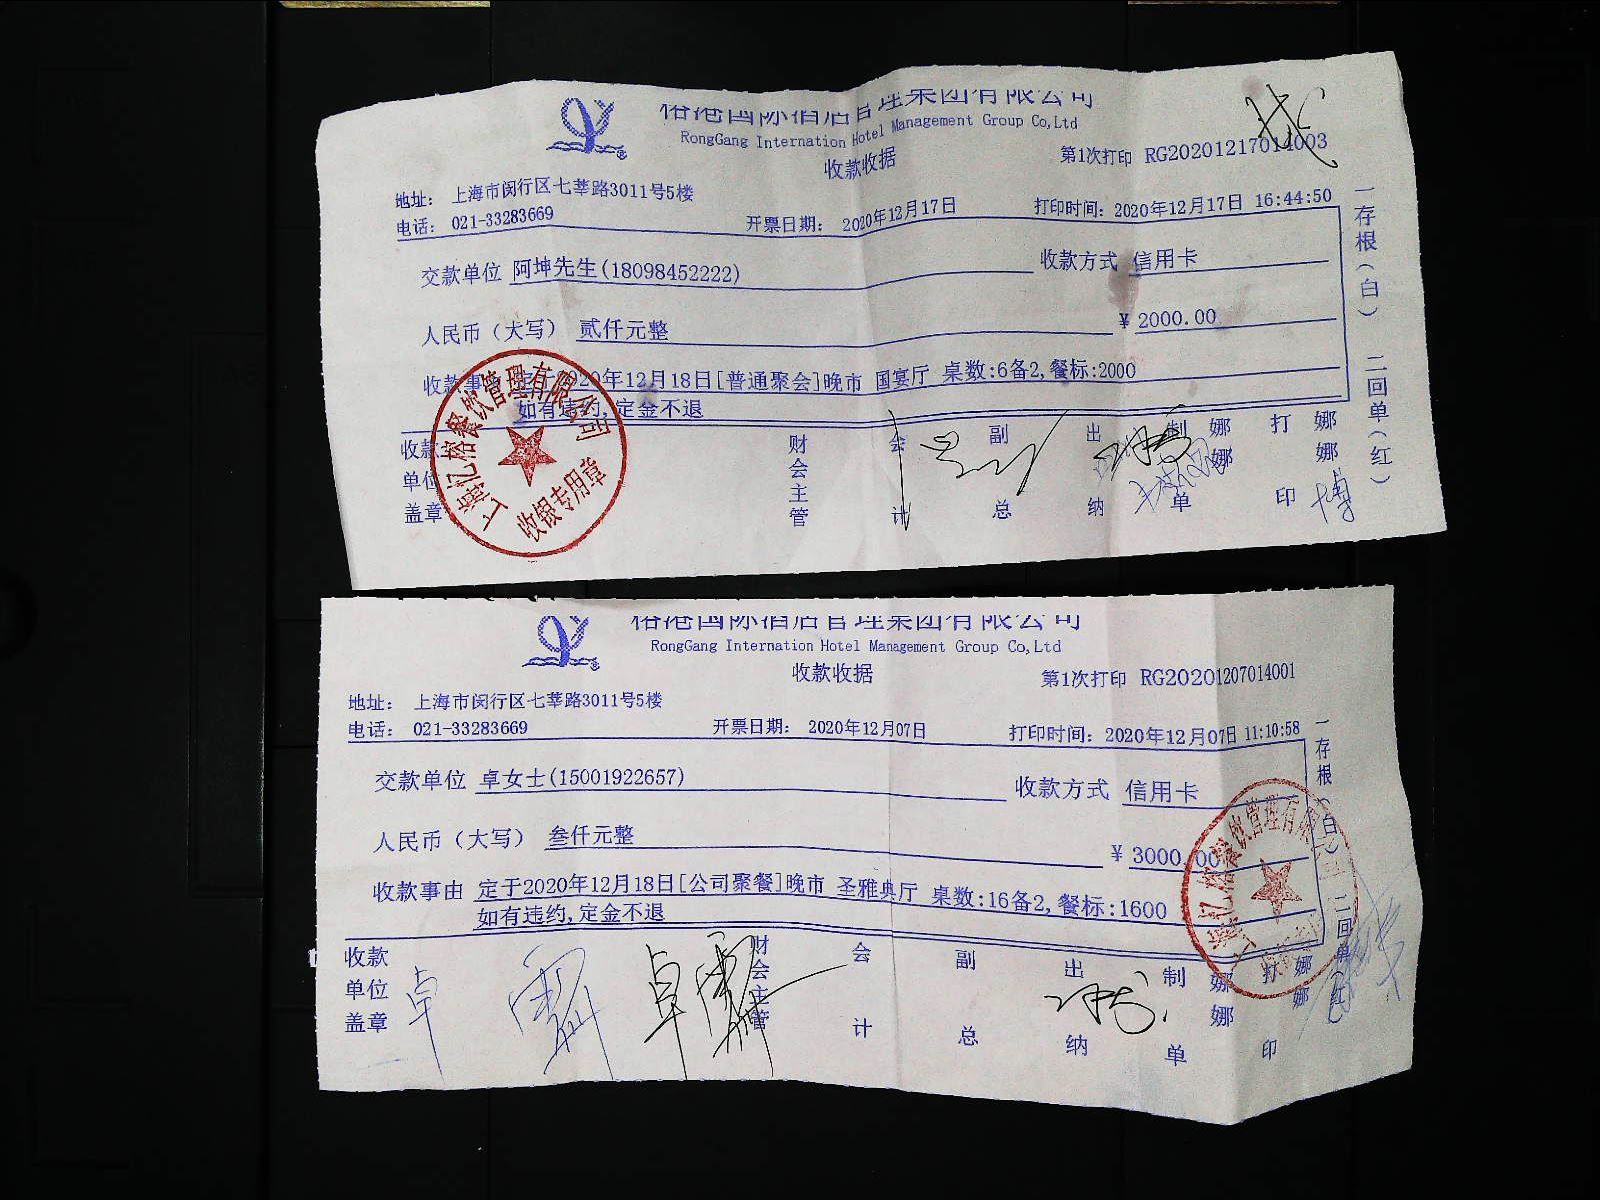 榕港国际酒店管理集团有限公司
RongGang International Hotel Management Group Co,Ltd
收款收据
第1次打印 RG20201217014003
地址: 上海市闵行区七莘路3011号5楼
电话: 021-33283669 开票日期: 2020年12月17日 打印时间: 2020年12月17日 16:44:50
交款单位 阿坤先生(18098452222) 收款方式 信用卡
人民币(大写) 贰仟元整 ¥ 2000.00
收款事由 定于2020年12月18日[普通聚会]晚市 国宴厅 桌数:6备2,餐标:2000
如有违约,定金不退
收款单位盖章 财会主管 会计 副总 出纳 制单 娜娜 打印 娜娜
博
一存根(白) 二回单(红)
餐饮管理有限公司
收银专用章
榕港国际酒店管理集团有限公司
RongGang International Hotel Management Group Co,Ltd
收款收据
第1次打印 RG20201207014001
地址: 上海市闵行区七莘路3011号5楼
电话: 021-33283669 开票日期: 2020年12月07日 打印时间: 2020年12月07日 11:10:58
交款单位 卓女士(15001922657) 收款方式 信用卡
人民币(大写) 叁仟元整 ¥ 3000.00
收款事由 定于2020年12月18日[公司聚餐]晚市 圣雅典厅 桌数:16备2,餐标:1600
如有违约,定金不退
收款单位盖章 财会主管 会计 副总 出纳 制单 娜娜 打印 娜娜
卓 卓
一存根(白) 二回单(红)
餐饮管理有限